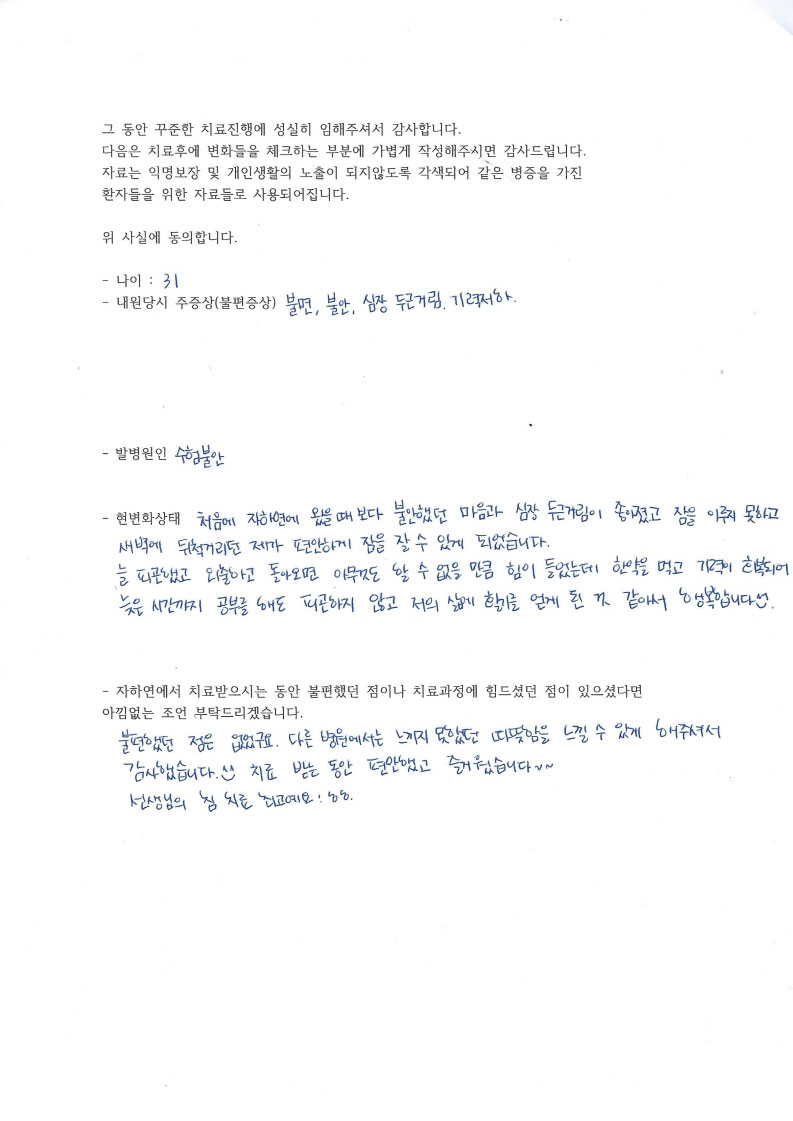 그 동안 꾸준한 치료진행에 성실히 임해주셔서 감사합니다.
다음은 치료후에 변화들을 체크하는 부분에 가볍게 작성해주시면 감사드립니다.
자료는 익명보장 및 개인생활의 노출이 되지않도록 각색되어 같은 병증을 가진
환자들을 위한 자료들로 사용되어집니다.
위 사실에 동의합니다.
- 나이 : 31
- 내원당시 주증상(불편증상) 불면, 불안, 심장 두근거림. 기력저하.
- 발병원인 수험불안
- 현변화상태 처음에 자하연에 왔을때 보다 불안했던 마음과 심장 두근거림이 좋아졌고 잠을 이루지 못하고
새벽에 뒤척거리던 제가 편안하게 잠을 잘 수 있게 되었습니다.
늘 피곤했고 외출하고 돌아오면 아무것도 할 수 없을 만큼 힘이 들었는데 한약을 먹고 기력이 회복되어
늦은 시간까지 공부를 해도 피곤하지 않고 저의 삶에 활기를 얻게 된 것 같아서 행복합니다.
- 자하연에서 치료받으시는 동안 불편했던 점이나 치료과정에 힘드셨던 점이 있으셨다면
아낌없는 조언 부탁드리겠습니다.
불편했던 점은 없었구요. 다른 병원에서는 느끼지 못했던 따뜻함을 느낄 수 있게 해주셔서
감사했습니다. 치료 받는 동안 편안했고 즐거웠습니다~~
선생님의 침 치료 최고예요! ㅎㅎ.